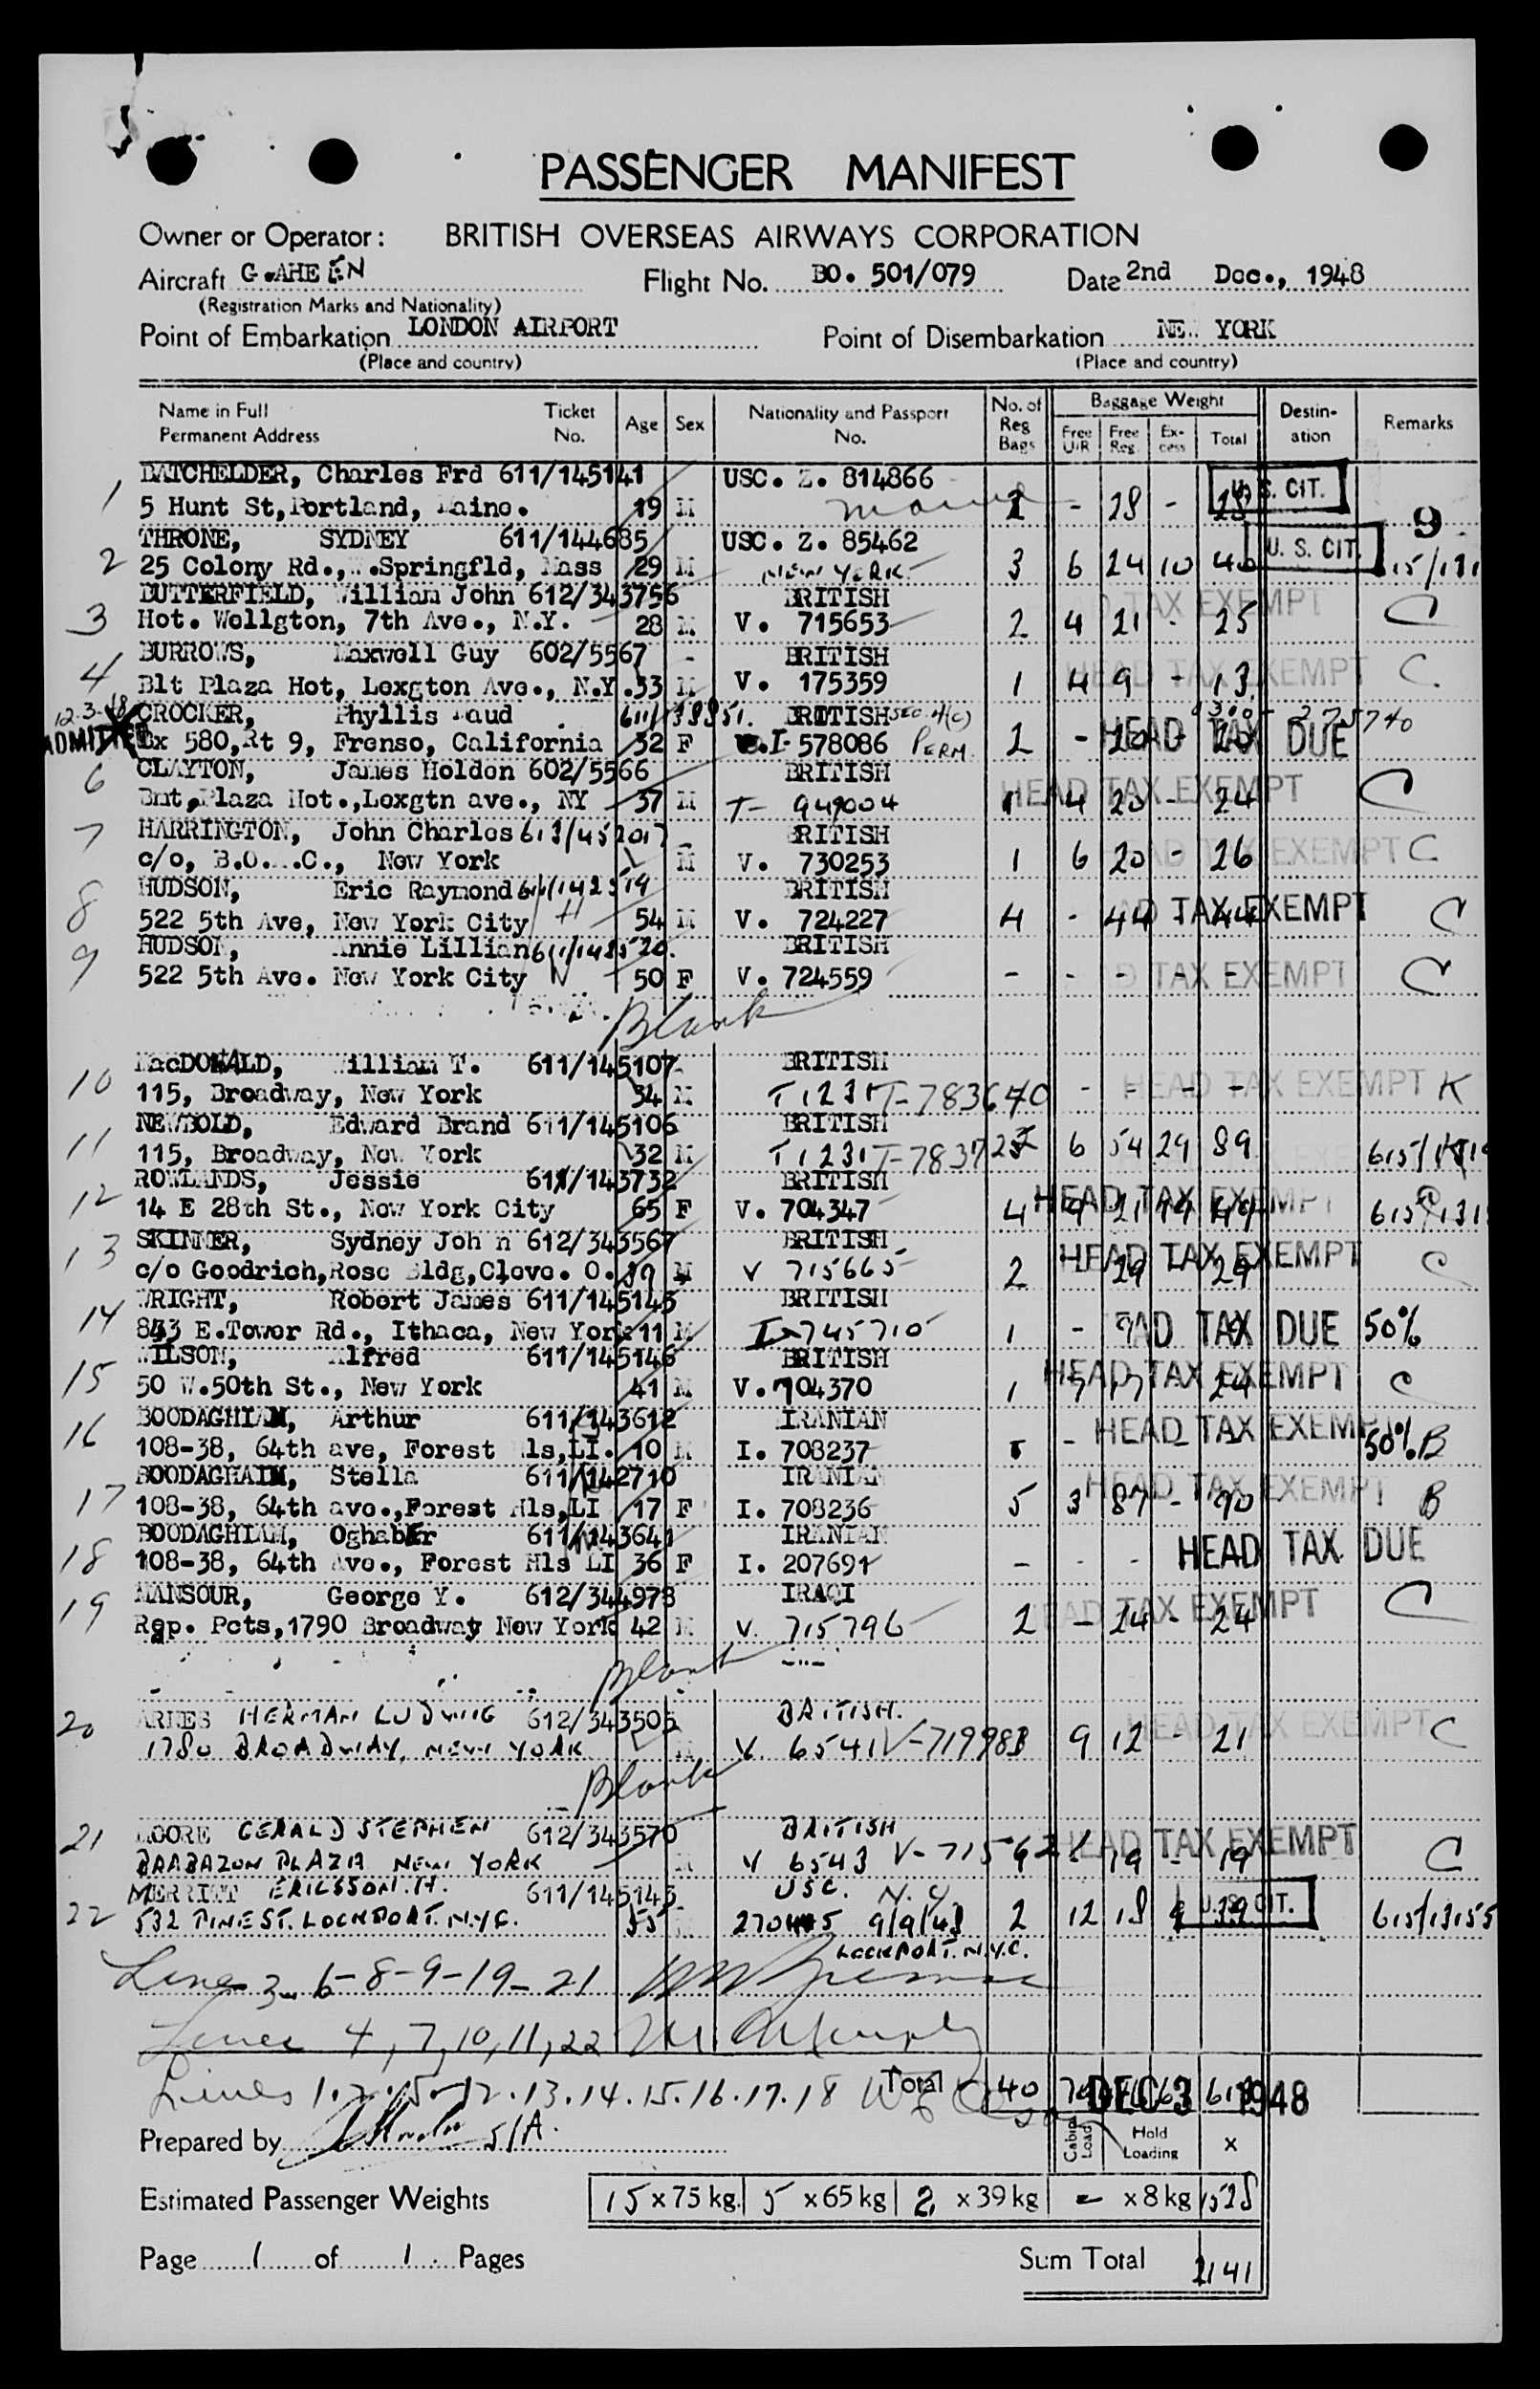 PASSENGER MANIFEST
Owner or Operator: BRITISH OVERSEAS AIRWAYS CORPORATION
Aircraft G.AHEEN Flight No. BO. 501/079 Date 2nd Dec., 1948
(Registration Marks and Nationality)
Point of Embarkation LONDON AIRPORT Point of Disembarkation NEW YORK
(Place and country) (Place and country)
Name in Full Ticket Age Sex Nationality and Passport No. of Baggage Weight Destin- Remarks
Permanent Address No. No. Reg Bags Free U/R Free Reg. Ex-cess Total ation
BATCHELDER, Charles Frd 611/145141 USC. Z. 814866 U. S. CIT.
1 5 Hunt St, Portland, Maine. 19 M 2 - 28 - 28 9
THRONE, SYDNEY 611/144685 USC. Z. 85462 U. S. CIT.
2 25 Colony Rd., W.Springfld, Mass 29 M NEW YORK 3 6 24 10 40
BUTTERFIELD, William John 612/343756 BRITISH HEAD TAX EXEMPT
3 Hot. Wellgton, 7th Ave., N.Y. 28 M V. 715653 2 4 21 - 25 C
BURROWS, Maxwell Guy 602/5567 BRITISH HEAD TAX EXEMPT
4 Blt Plaza Hot, Lexgton Ave., N.Y. 33 M V. 175359 1 4 9 - 13 C
12-3-48 CROCKER, Phyllis Maud BRITISH SEC 4(c)
ADMITTED Bx 580, Rt 9, Frenso, California 32 F I- 578086 PERM. 2 - 20 - 20 HEAD TAX DUE
CLAYTON, James Holden 602/5566 BRITISH HEAD TAX EXEMPT
6 Bnt, Plaza Hot., Lexgtn ave., NY 37 M T- 949004 1 4 20 - 24 C
7 HARRINGTON, John Charles 613/452017 BRITISH
c/o, B.O.A.C., New York M V. 730253 1 6 20 - 26 HEAD TAX EXEMPT C
HUDSON, Eric Raymond BRITISH
8 522 5th Ave, New York City 54 M V. 724227 4 - 44 - 44 HEAD TAX EXEMPT C
HUDSON, Annie Lillian BRITISH
9 522 5th Ave. New York City 50 F V. 724559 - - - HEAD TAX EXEMPT C
Blank
MacDONALD, William T. 611/145107 BRITISH
10 115, Broadway, New York 34 M T 1231 T-783640 - - - - HEAD TAX EXEMPT K
NEWBOLD, Edward Brand 611/145106 BRITISH
11 115, Broadway, New York 32 M T 1231 T-783723 6 54 29 89
ROWLANDS, Jessie 611/143732 BRITISH
12 14 E 28th St., New York City 65 F V. 704347 4 HEAD TAX EXEMPT C
SKINNER, Sydney Joh n 612/343567 BRITISH
13 c/o Goodrich, Rose Bldg, Cleve. O. 39 M V 715665 2 29 29 HEAD TAX EXEMPT C
WRIGHT, Robert James 611/145143 BRITISH
14 833 E.Tower Rd., Ithaca, New York 11 M I 745710 1 - 9 HEAD TAX DUE 50%
WILSON, Alfred 611/145146 BRITISH
15 50 W.50th St., New York 41 M V. 704370 1 7 17 24 HEAD TAX EXEMPT C
BOODAGHIAN, Arthur 611/143612 IRANIAN
16 108-38, 64th ave, Forest Hls, LI. 10 M I. 708237 - HEAD TAX EXEMPT 50% B
BOODAGHAIN, Stella 611/142710 IRANIAN
17 108-38, 64th ave., Forest Hls, LI 17 F I. 708236 5 3 87 - 90 HEAD TAX EXEMPT B
BOODAGHIAN, Oghaber 611/143641 IRANIAN
18 108-38, 64th Ave., Forest Hls LI 36 F I. 207691 - - - HEAD TAX DUE
MANSOUR, George Y. 612/344978 IRAQI
19 Rep. Pcts, 1790 Broadway New York 42 M V. 715796 2 - 24 - 24 HEAD TAX EXEMPT C
Blank
20 ARIES HERMAN LUDWIG 612/343505 BRITISH.
1780 BROADWAY, NEW YORK M V 6541 V-719983 9 12 - 21 HEAD TAX EXEMPT C
Blank
21 MOORE GERALD STEPHEN 612/343570 BRITISH
BARBAZON PLAZA NEW YORK M V 6543 - 19 - 19 HEAD TAX EXEMPT C
MERRITT ERICSSON. H. 611/145143 USC. N.Y.
22 532 PINE ST. LOCKPORT. N.Y.C. 55 M 9/9/48 2 12 18 9 39 U. S. CIT. 615/13155
LOCKPORT. N.Y.C.
Lines 3-6-8-9-19-21
Lines 4, 7, 10, 11, 22
Lines 1.2.5-12.13.14.15.16.17.18 Total 40 DEC 3 1948
Prepared by S/A. Cabin Load Hold Loading x
Estimated Passenger Weights 15 x 75 kg. 5 x 65 kg 2 x 39 kg - x 8 kg 1528
Page 1 of 1 Pages Sum Total 2141